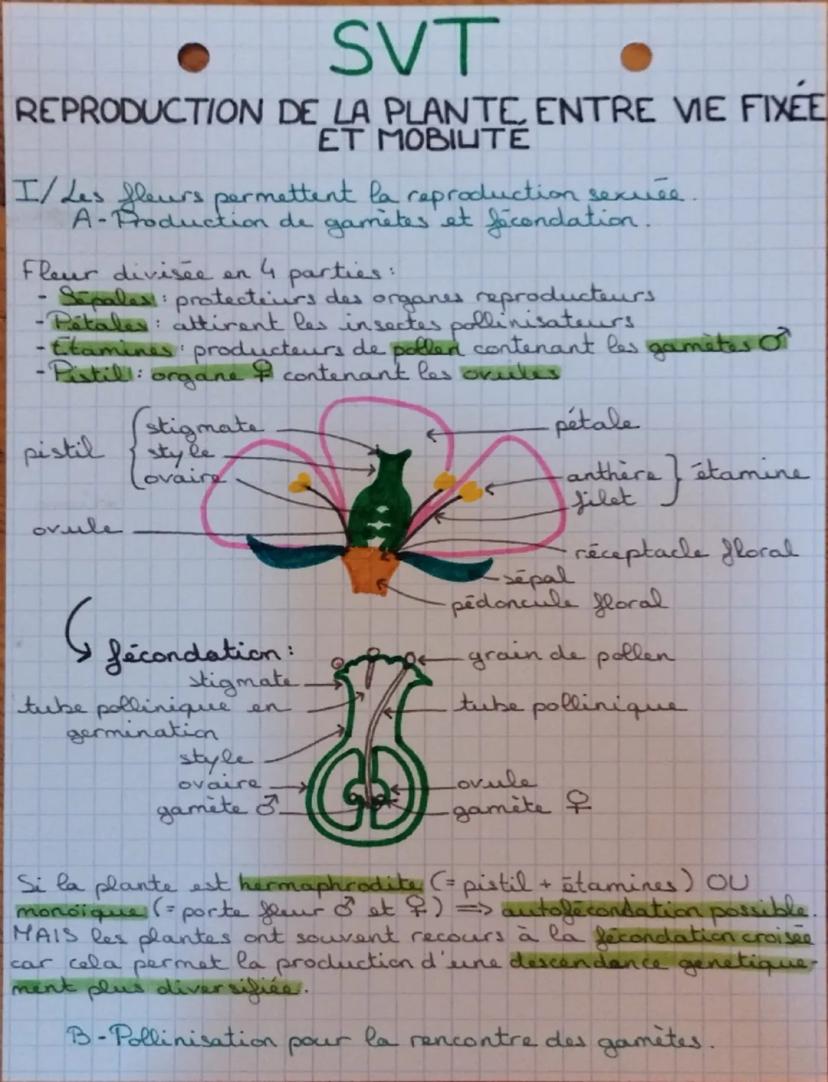 SVT
REPRODUCTION DE LA PLANTE ENTRE VIE FIXÉE
ET MOBILITÉ
I/ Les fleurs permettent la reproduction sexuée.
A - Production de gamètes et fécondation.
Fleur divisée en 4 parties :
- Sépales : protecteurs des organes reproducteurs
- Pétales : attirent les insectes pollinisateurs
- Étamines : producteurs de pollen contenant les gamètes ♂
- Pistil : organe ♀ contenant les ovules
pistil
stigmate
style
ovaire
ovule
pétale
anthère
filet
étamine
réceptacle floral
sépal
pédoncule floral
fécondation :
stigmate
tube pollinique en
germination
style
ovaire
gamète ♂
grain de pollen
tube pollinique
ovule
gamète ♀
Si la plante est hermaphrodite (= pistil + étamines) OU
monoïque (= porte fleur ♂ et ♀) => autofécondation possible.
MAIS les plantes ont souvent recours à la fécondation croisée
car cela permet la production d'une descendance génétique-
ment plus diversifiée.
B - Pollinisation pour la rencontre des gamètes.